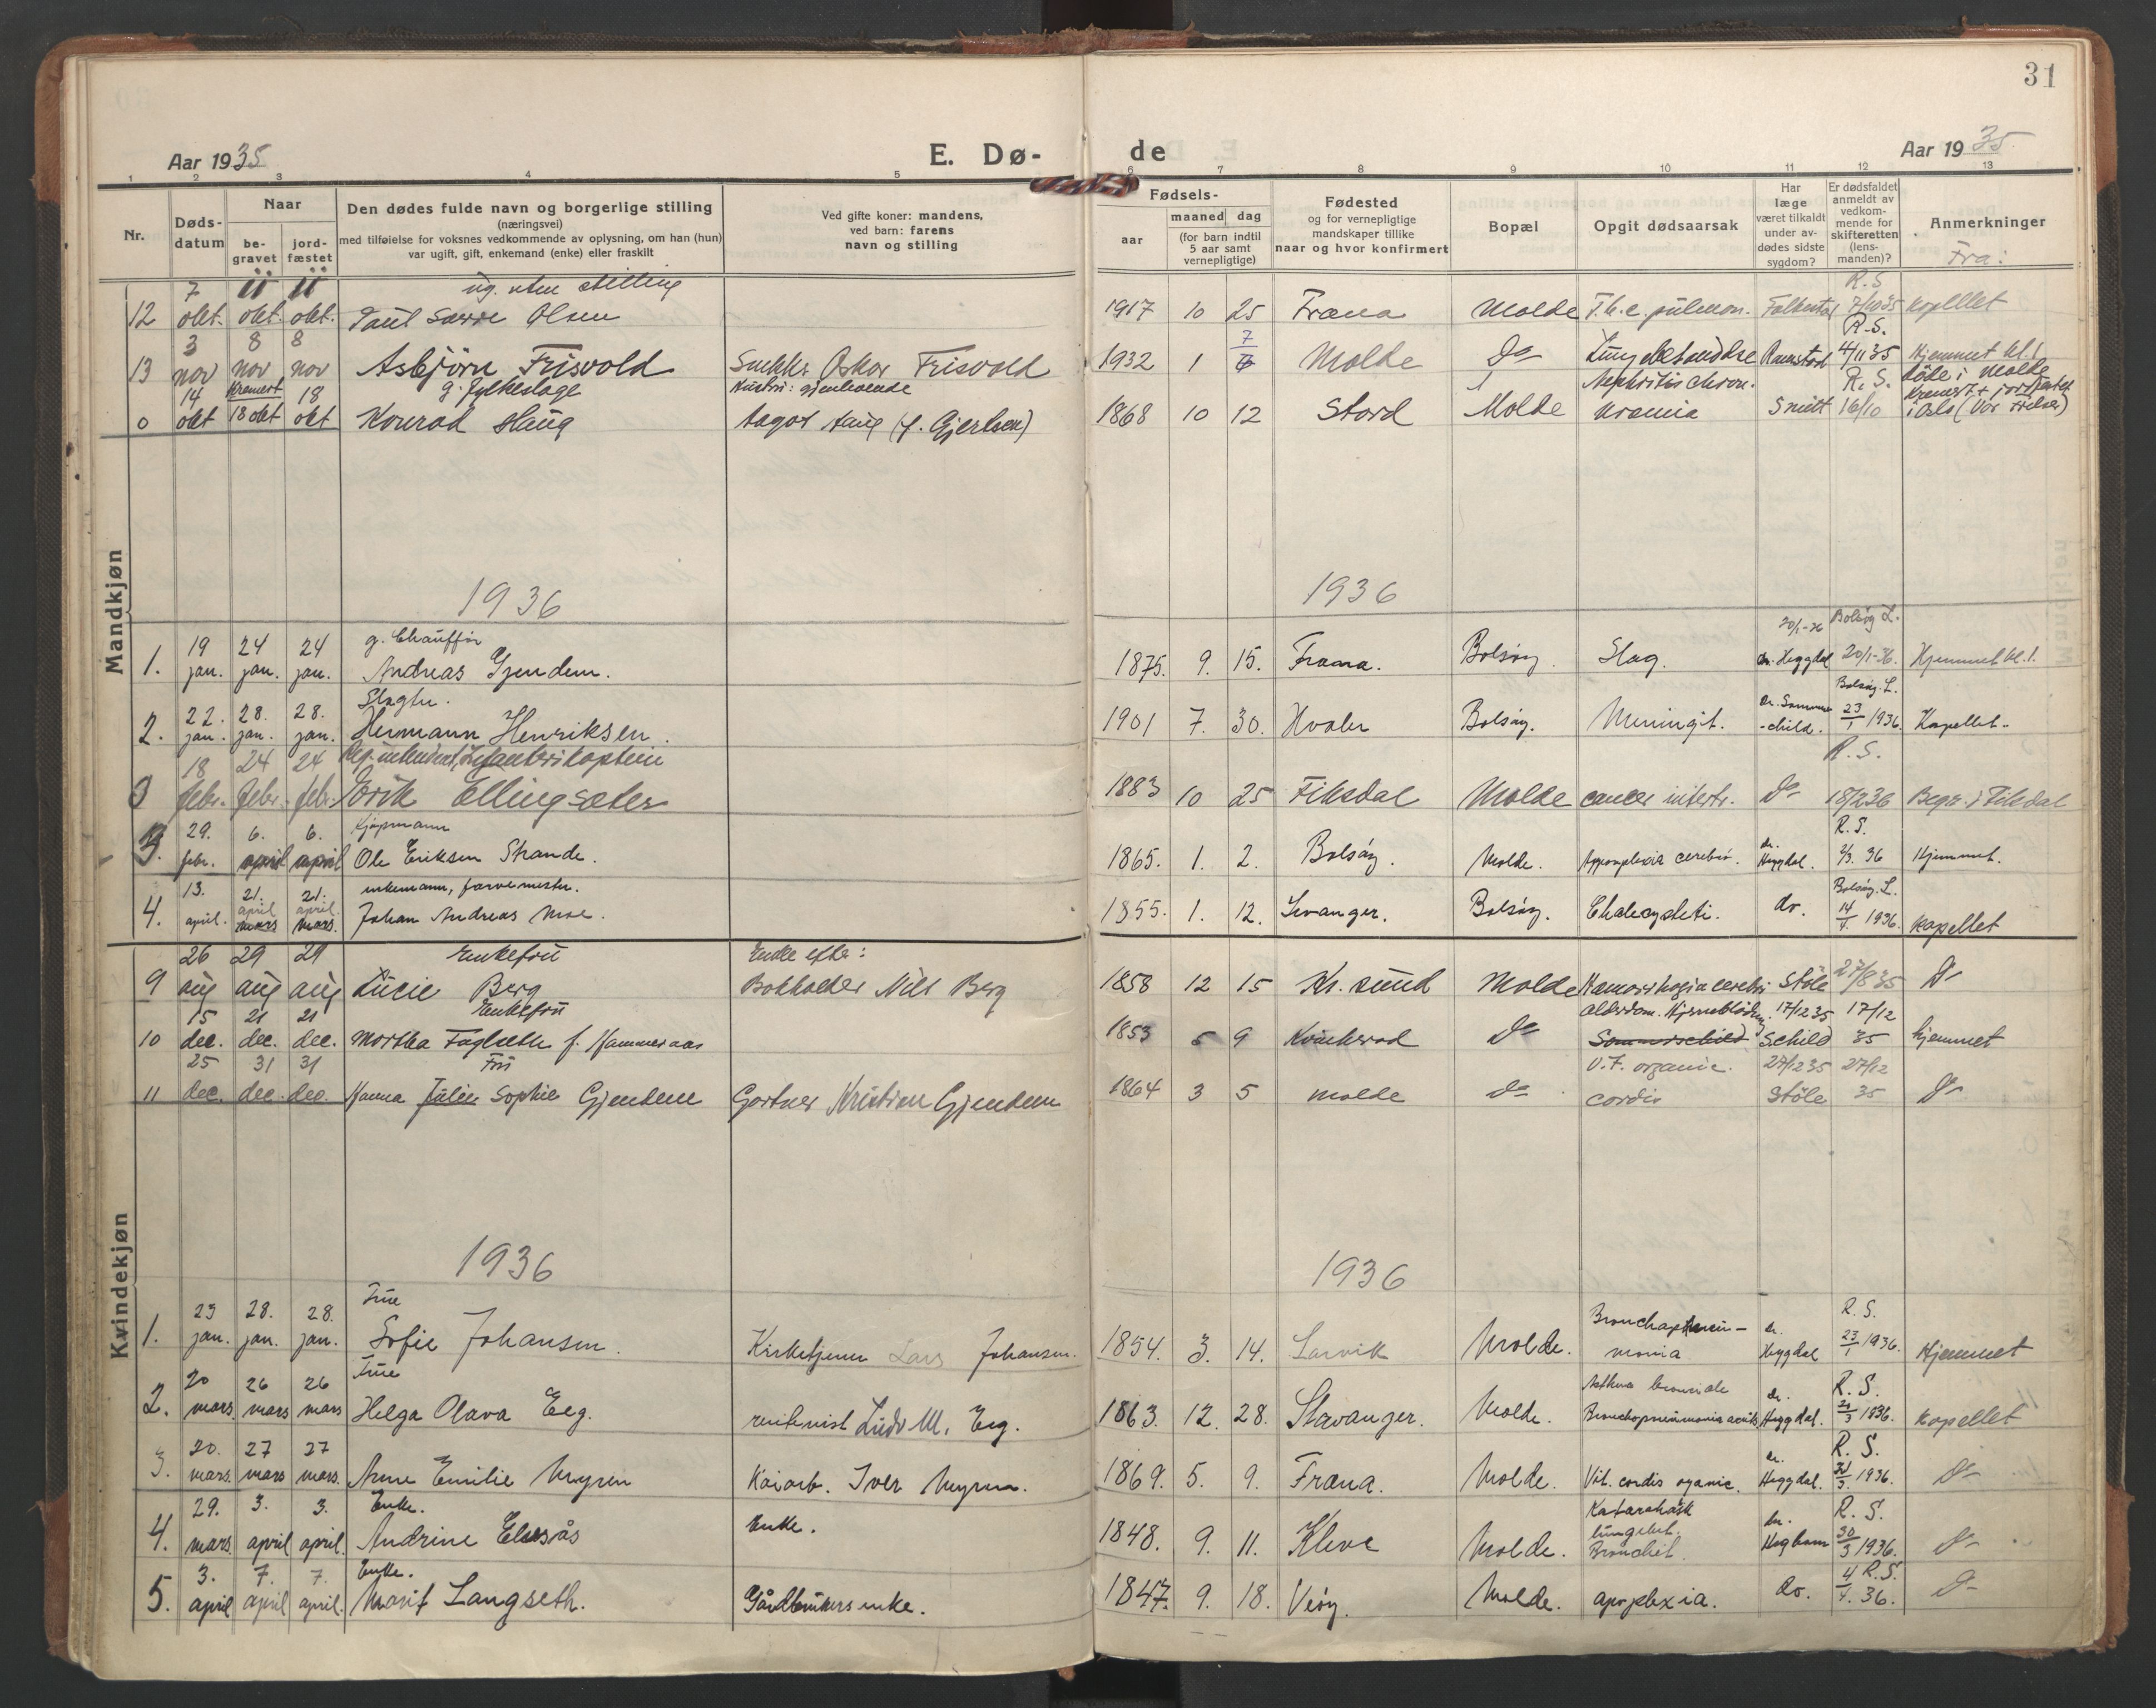 31
Aar 1935 E. Dø- de Aar 1935
1 2 3 4 5 6 7 8 9 10 11 12 13
Nr.
Døds-datum
Naar
be-gravet
jord-fæstet
Den dødes fulde navn og borgerlige stilling
(næringsvei)
med tilføielse for voksnes vedkommende av oplysning, om han (hun)
var ugift, gift, enkemand (enke) eller fraskilt
Ved gifte koner: mandens,
ved barn: farens
navn og stilling
Fødsels-
aar
maaned dag
(for barn indtil
5 aar samt
vernepligtige)
Fødested
og for vernepligtige
mandskaper tillike
naar og hvor konfirmert
Bopæl
Opgit dødsaarsak
Har
læge
været tilkaldt
under av-
dødes sidste
sygdom?
Er dødsfaldet
anmeldt av
vedkom-
mende for
skifteretten
(lens-
manden)?
Anmerkninger
Fra:
Mandkjøn
7 11 11 ug. uten stilling R.S
12 okt. okt. okt. Paul Olsen 1917 10 25 Fræna Molde T.b.c. pulmon. 7/10 35 kapellet
3 8 8 7 R.S.
13 nov nov nov Asbjørn Frisvold Snekker Oskar Frisvold 1932 1 6 Molde Do Lungebetendelse 4/11 35 Hjemmet kl. 1
14 Kremert 18 g. fylkeslæge Hustru: gjenlevende Nephritis chron. R.S. døde i Molde
0 okt 18 okt okt Konrad Haug Aagot Haug (f. Gjertsen) 1868 10 12 Stord Molde uræmia Smitt 16/10 i Oslo (Vor frelser)
1936 1936
19 24 24 g. Chauffør 20/1-36 Bolsøy L.
1. jan. jan. jan. Andreas Gjendem. 1875. 9. 15. Fræna. Bolsøy. Slag. dr. Heggdal 20/1-36. Hjemmet kl. 1.
22. 28. 28. Slagter. Dr. Sommer Bolsøy. L.
2. jan. jan. jan. Hermann Henriksen. 1901 7. 30. Hvaler Bolsøy. Meningit. -child. 23/1 1936. Kapellet.
18 24 24 Reg. intendent, Infanterikaptein R.S.
0 febr. febr. febr. Erik Ellingsæter 1883 10 25 Fiksdal Molde cancer intestr. Do 18/2 36 Begr. i Fiksdal
29. 6. 6. Kjøpmann dr. R.S.
3. febr. april april Ole Eriksen Strande. 1865. 1. 2. Bolsøy. Molde. Appoplexia cerebri. Heggdal. 2/3. 36 Hjemmet.
13. 21. 21. enkemann, farvemester. Bolsøy. L.
april april
4. april. mars mars. Johan Andreas Moe. 1855. 1. 12. Levanger. Bolsøy. do. 14/4. 1936. Kapellet
Kvindekjøn
26 29 29 Enkefru Enke efter:
9 aug aug aug Lucie Berg Bokholder Nils Berg 1858 12 15 Kr. sund Molde Hæmorrhagia cerebri Støle 27/8 35 Do
15 21 21 Enkefru alderdom. Hjerneblødning. 17/12 35 17/12
10 dec. dec. dec. Martha f. Hammeraas 1853 5 9 Do Sommerschild Schild 35 hjemmet
25 31 31 Fru V.F. organic. 27/12 35 27/12
11 dec. dec. dec. Hanna Julie Sophie Gjendem Gartner Kristian Gjendem 1864 3 5 Molde do cordis Støle 35 Do
1936 1936
23 28. 28. Frue Bronchopneu- dr. R.S.
1. jan. jan. jan. Sofie Johansen. Kirketjener Lars Johansen. 1854. 3. 14. Larvik Molde. monia Heggdal 23/1 1936. Hjemmet
20 26 26 Frue Asthma bronciale dr. R.S.
2. mars. mars mars Helga Olava Eeg. Ludv M. Eeg. 1863. 12. 28. Stavanger. Molde. Bronchopneumonia acuta Heggdal. 21/3 1936. Kapellet
20. 27 27 dr. R.S.
3. mars. mars mars. Anne Emilie Myren Kaiarb. Iver Myren. 1869. 5. 9. Fræna. Molde. Vit. cordis oganic. Heggdal. 21/3. 1936. Do
29. 3. 3. Enke. Katarrhalsk dr. R.S.
4. mars. april april. Andrine Elvsås Enke. 1848. 9. 11. Kleve Molde. lungebet. Bronchit. 30/3 1936. Do
3. 7. 7. Enke. 4 R.S.
5. april april april. Marit Langseth. Gårdbrukers enke. 1847. 9. 18. Veøy. Molde. apoplexia. do. 4. 36. Do